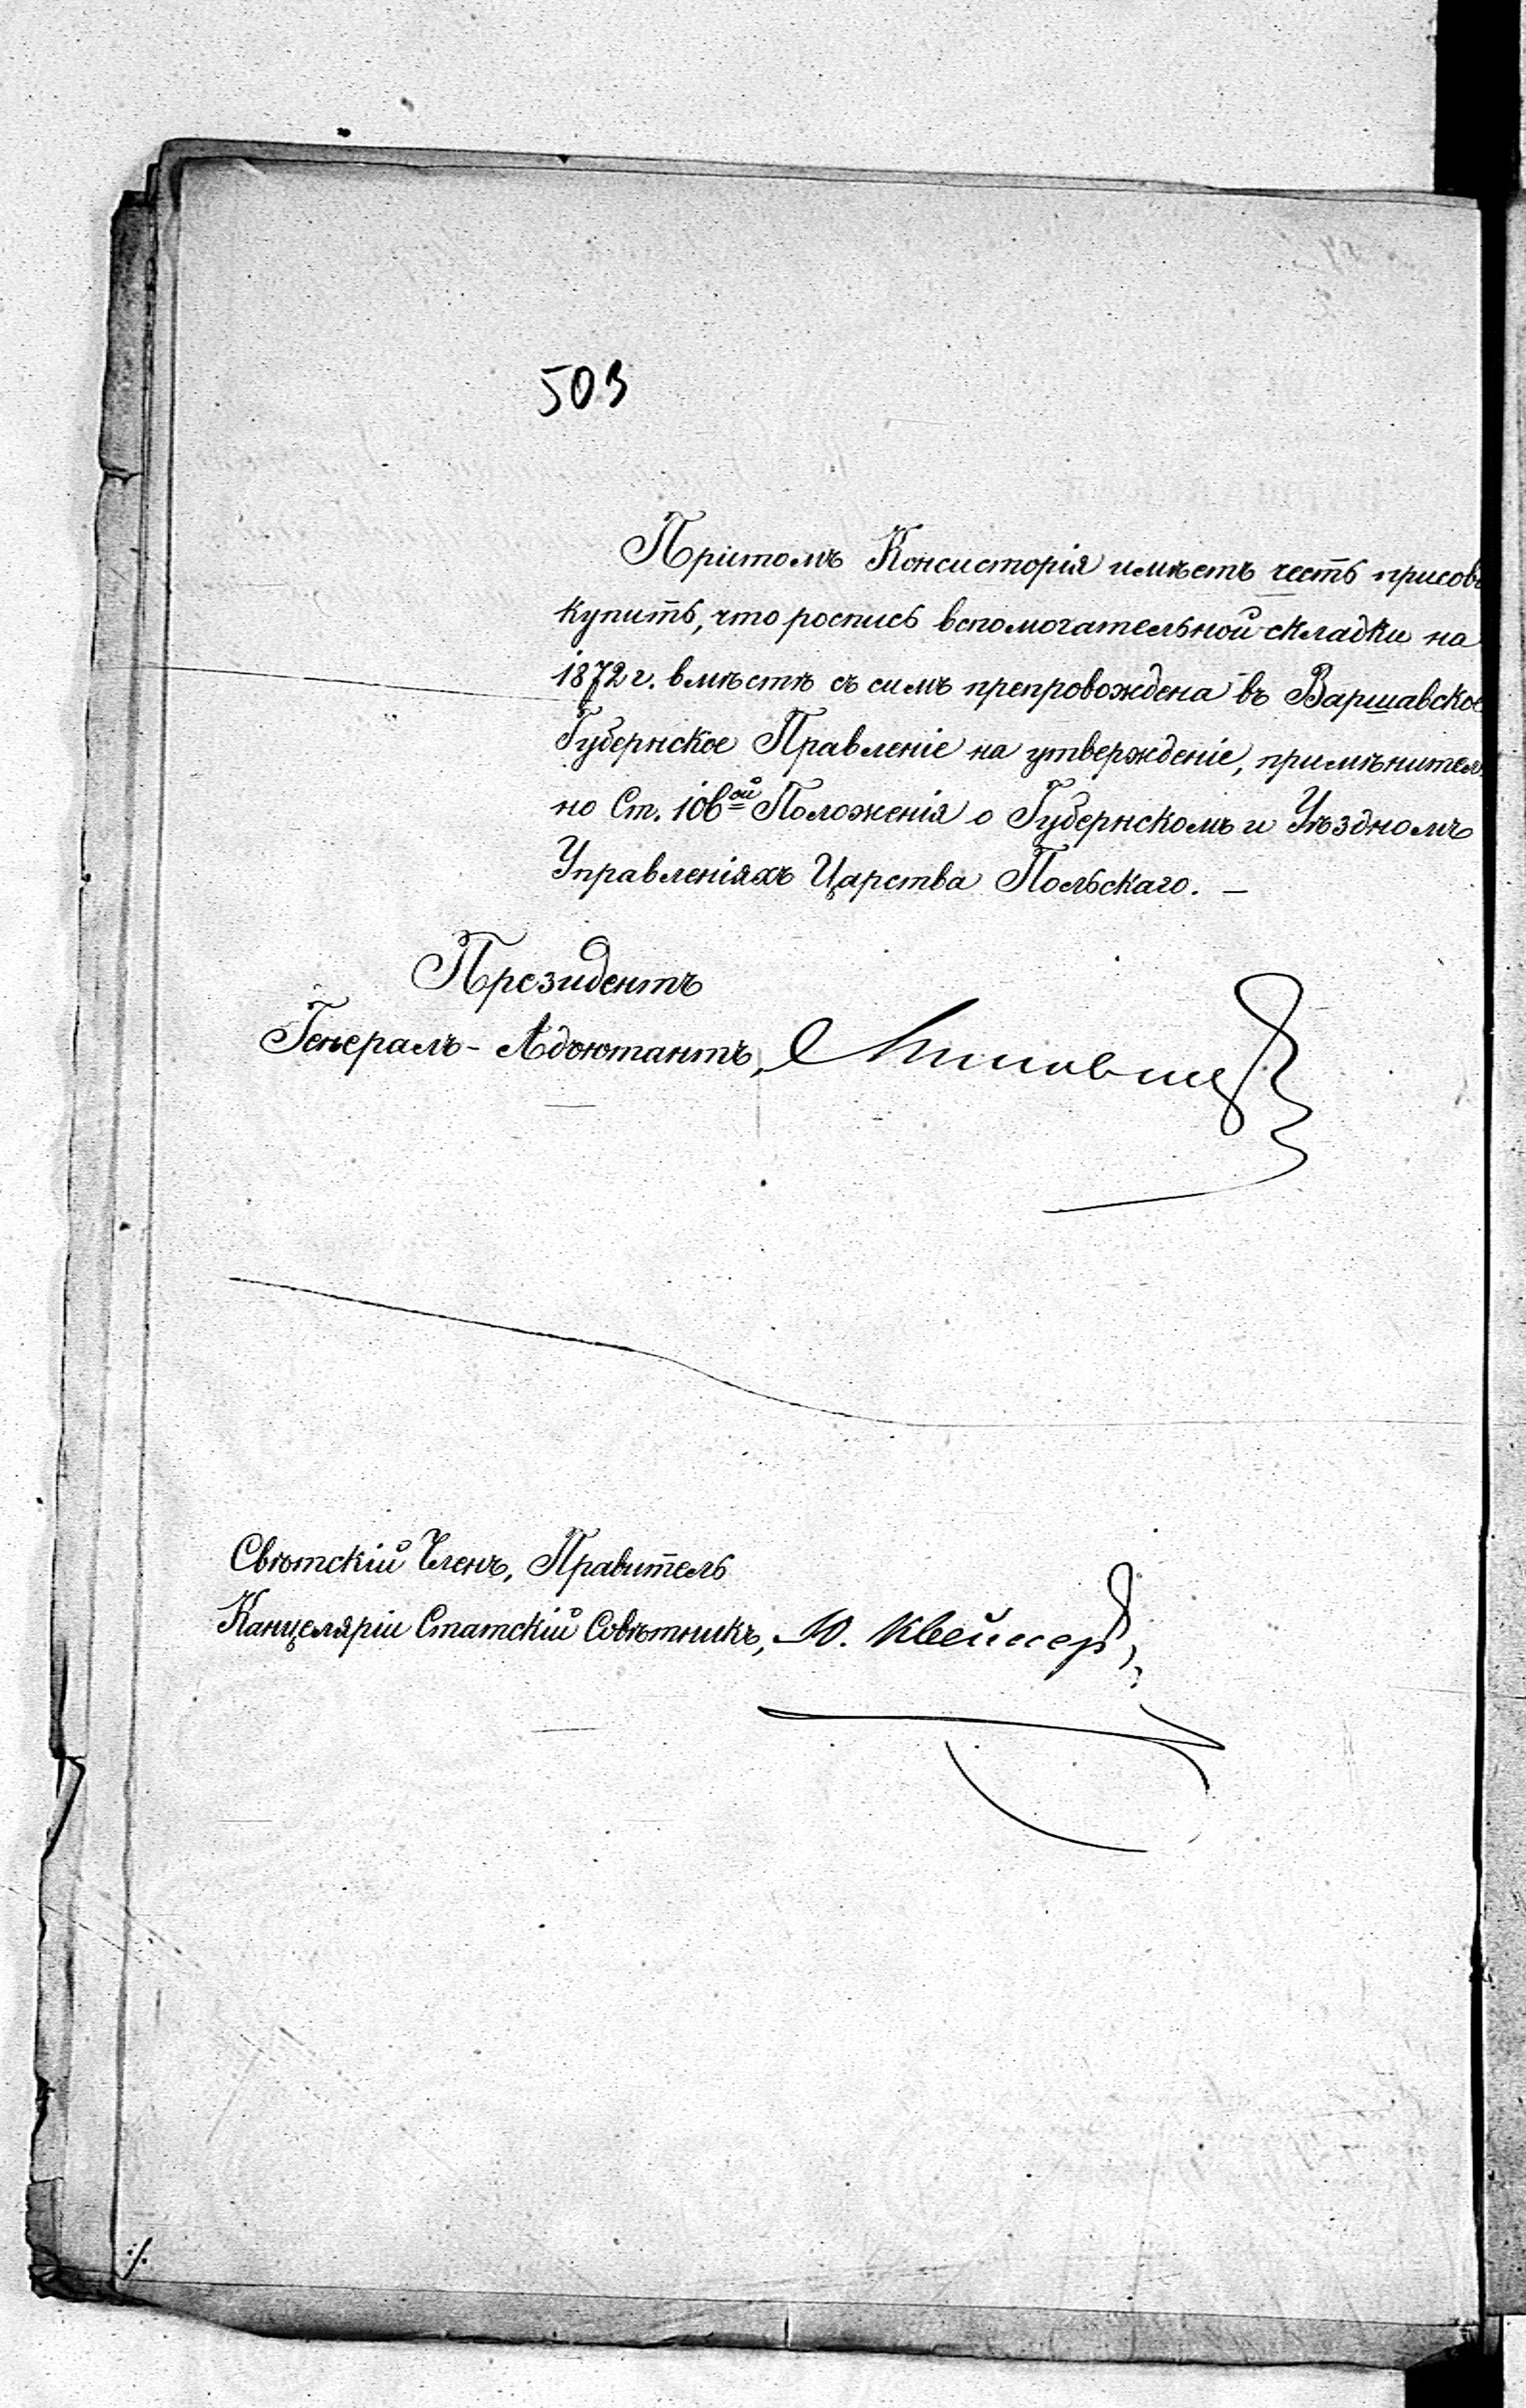 503
Притомъ Консисторія имѣетъ честь присово
купить, что роспись вспомогательной складки на
1872 г. вмѣстѣ съ симъ препровождена въ Варшавское
Губернское Правленіе на утвержденіе, примѣнитель
но Ст. 106ой Положенія о Губернскомъ и Уѣздномъ
Управленіяхъ Царства Польскаго. —
Президентъ
Генералъ-Адъютантъ,
Свѣтскій Членъ, Правитель
Канцеляріи Статскій Совѣтникъ, Ю.